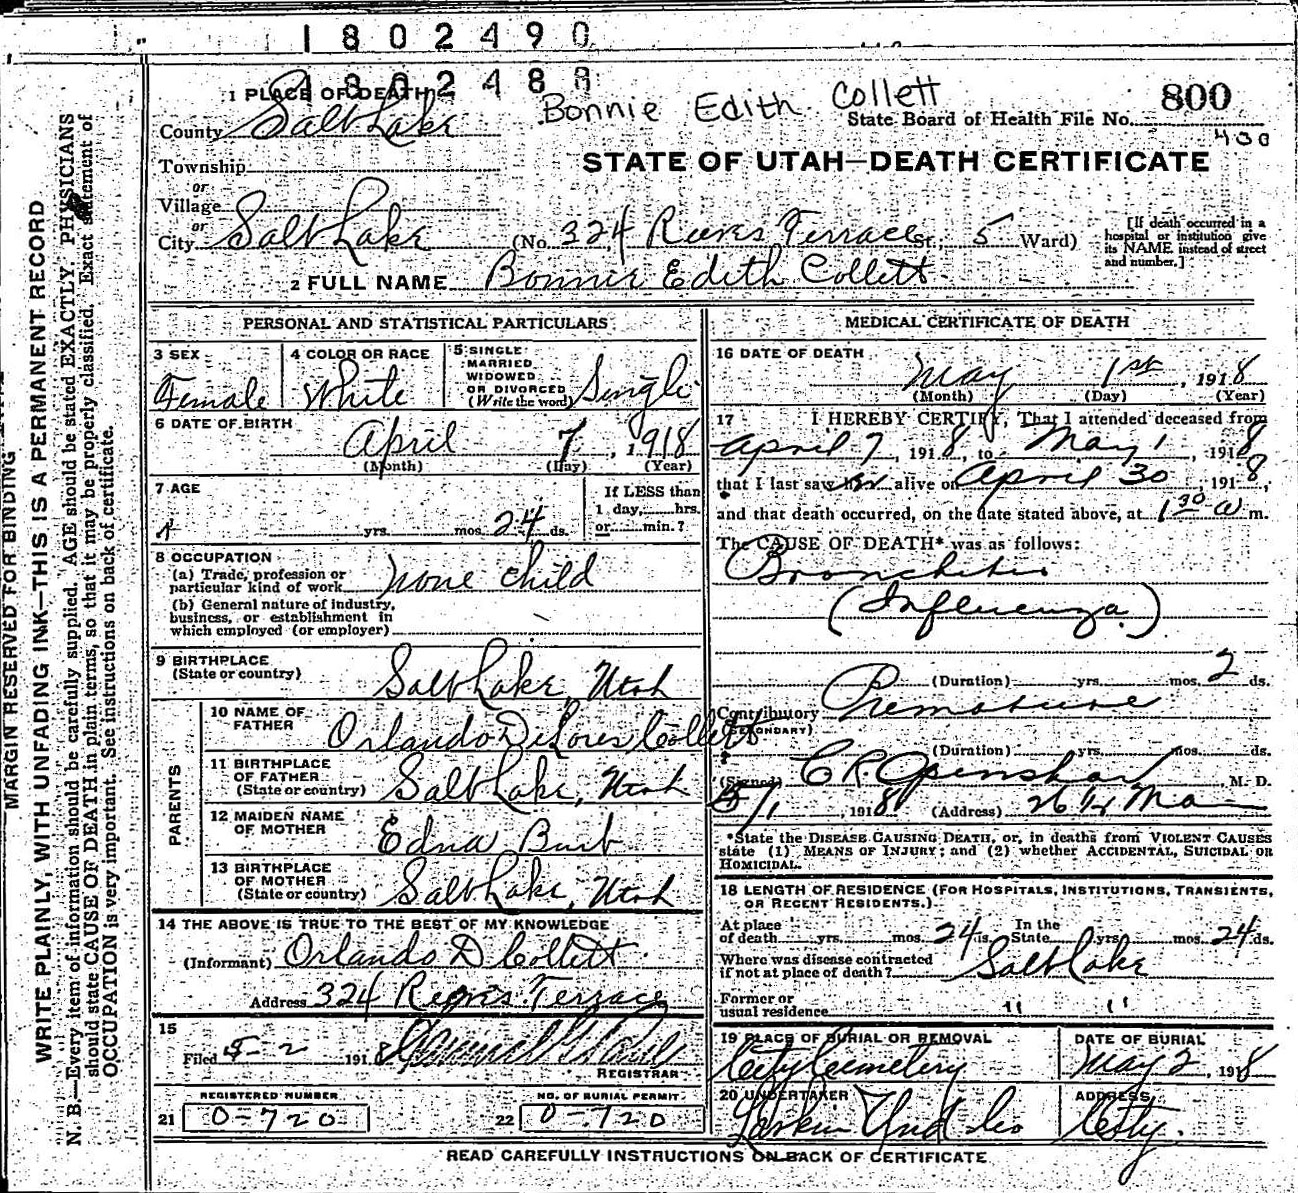 1802490
1802488
1 PLACE OF DEATH
Bonnie Edith Collett
800
County Salt Lake
State Board of Health File No.
430
Township
STATE OF UTAH—DEATH CERTIFICATE
or
Village
or
City Salt Lake (No. 324 Reeves Terrace St.; 5 Ward)
[If death occurred in a hospital or institution give its NAME instead of street and number.]
2 FULL NAME Bonnie Edith Collett
PERSONAL AND STATISTICAL PARTICULARS
3 SEX Female
4 COLOR OR RACE White
5 SINGLE MARRIED WIDOWED OR DIVORCED (Write the word) Single
6 DATE OF BIRTH April 7, 1918
(Month) (Day) (Year)
7 AGE yrs. mos. 24 ds.
If LESS than 1 day, hrs. or min.?
8 OCCUPATION
(a) Trade, profession or particular kind of work none child
(b) General nature of industry, business, or establishment in which employed (or employer)
9 BIRTHPLACE (State or country) Salt Lake, Utah
PARENTS
10 NAME OF FATHER Orlando DeLores Collett
11 BIRTHPLACE OF FATHER (State or country) Salt Lake, Utah
12 MAIDEN NAME OF MOTHER Edna Burb
13 BIRTHPLACE OF MOTHER (State or country) Salt Lake, Utah
14 THE ABOVE IS TRUE TO THE BEST OF MY KNOWLEDGE
(Informant) Orlando D Collett
Address 324 Reeves Terrace
15
Filed 5-2 1918
REGISTRAR
REGISTERED NUMBER
21 0-720
NO. OF BURIAL PERMIT
22 0-720
MEDICAL CERTIFICATE OF DEATH
16 DATE OF DEATH May 1st, 1918
(Month) (Day) (Year)
17 I HEREBY CERTIFY, That I attended deceased from
April 7, 1918, to May 1, 1918
that I last saw her alive on April 30, 1918,
and that death occurred, on the date stated above, at 1 30 a m.
The CAUSE OF DEATH* was as follows:
Bronchitis
(Influenza)
(Duration) yrs. mos. 2 ds.
Contributory Premature
(SECONDARY)
(Duration) yrs. mos. ds.
(Signed) C R Openshaw M. D.
5/1, 1918 (Address)
*State the DISEASE CAUSING DEATH, or, in deaths from VIOLENT CAUSES
state (1) MEANS OF INJURY; and (2) whether ACCIDENTAL, SUICIDAL OR
HOMICIDAL.
18 LENGTH OF RESIDENCE (FOR HOSPITALS, INSTITUTIONS, TRANSIENTS,
OR RECENT RESIDENTS.)
At place of death yrs. mos. 24 ds. In the State yrs. mos. 24 ds.
Where was disease contracted if not at place of death? Salt Lake
Former or usual residence " "
19 PLACE OF BURIAL OR REMOVAL City Cemetery
DATE OF BURIAL May 2, 1918
20 UNDERTAKER Larkin Und Co
ADDRESS City.
READ CAREFULLY INSTRUCTIONS ON BACK OF CERTIFICATE
MARGIN RESERVED FOR BINDING
WRITE PLAINLY, WITH UNFADING INK—THIS IS A PERMANENT RECORD
N. B.—Every item of information should be carefully supplied. AGE should be stated EXACTLY. PHYSICIANS
should state CAUSE OF DEATH in plain terms, so that it may be properly classified. Exact statement of
OCCUPATION is very important. See instructions on back of certificate.